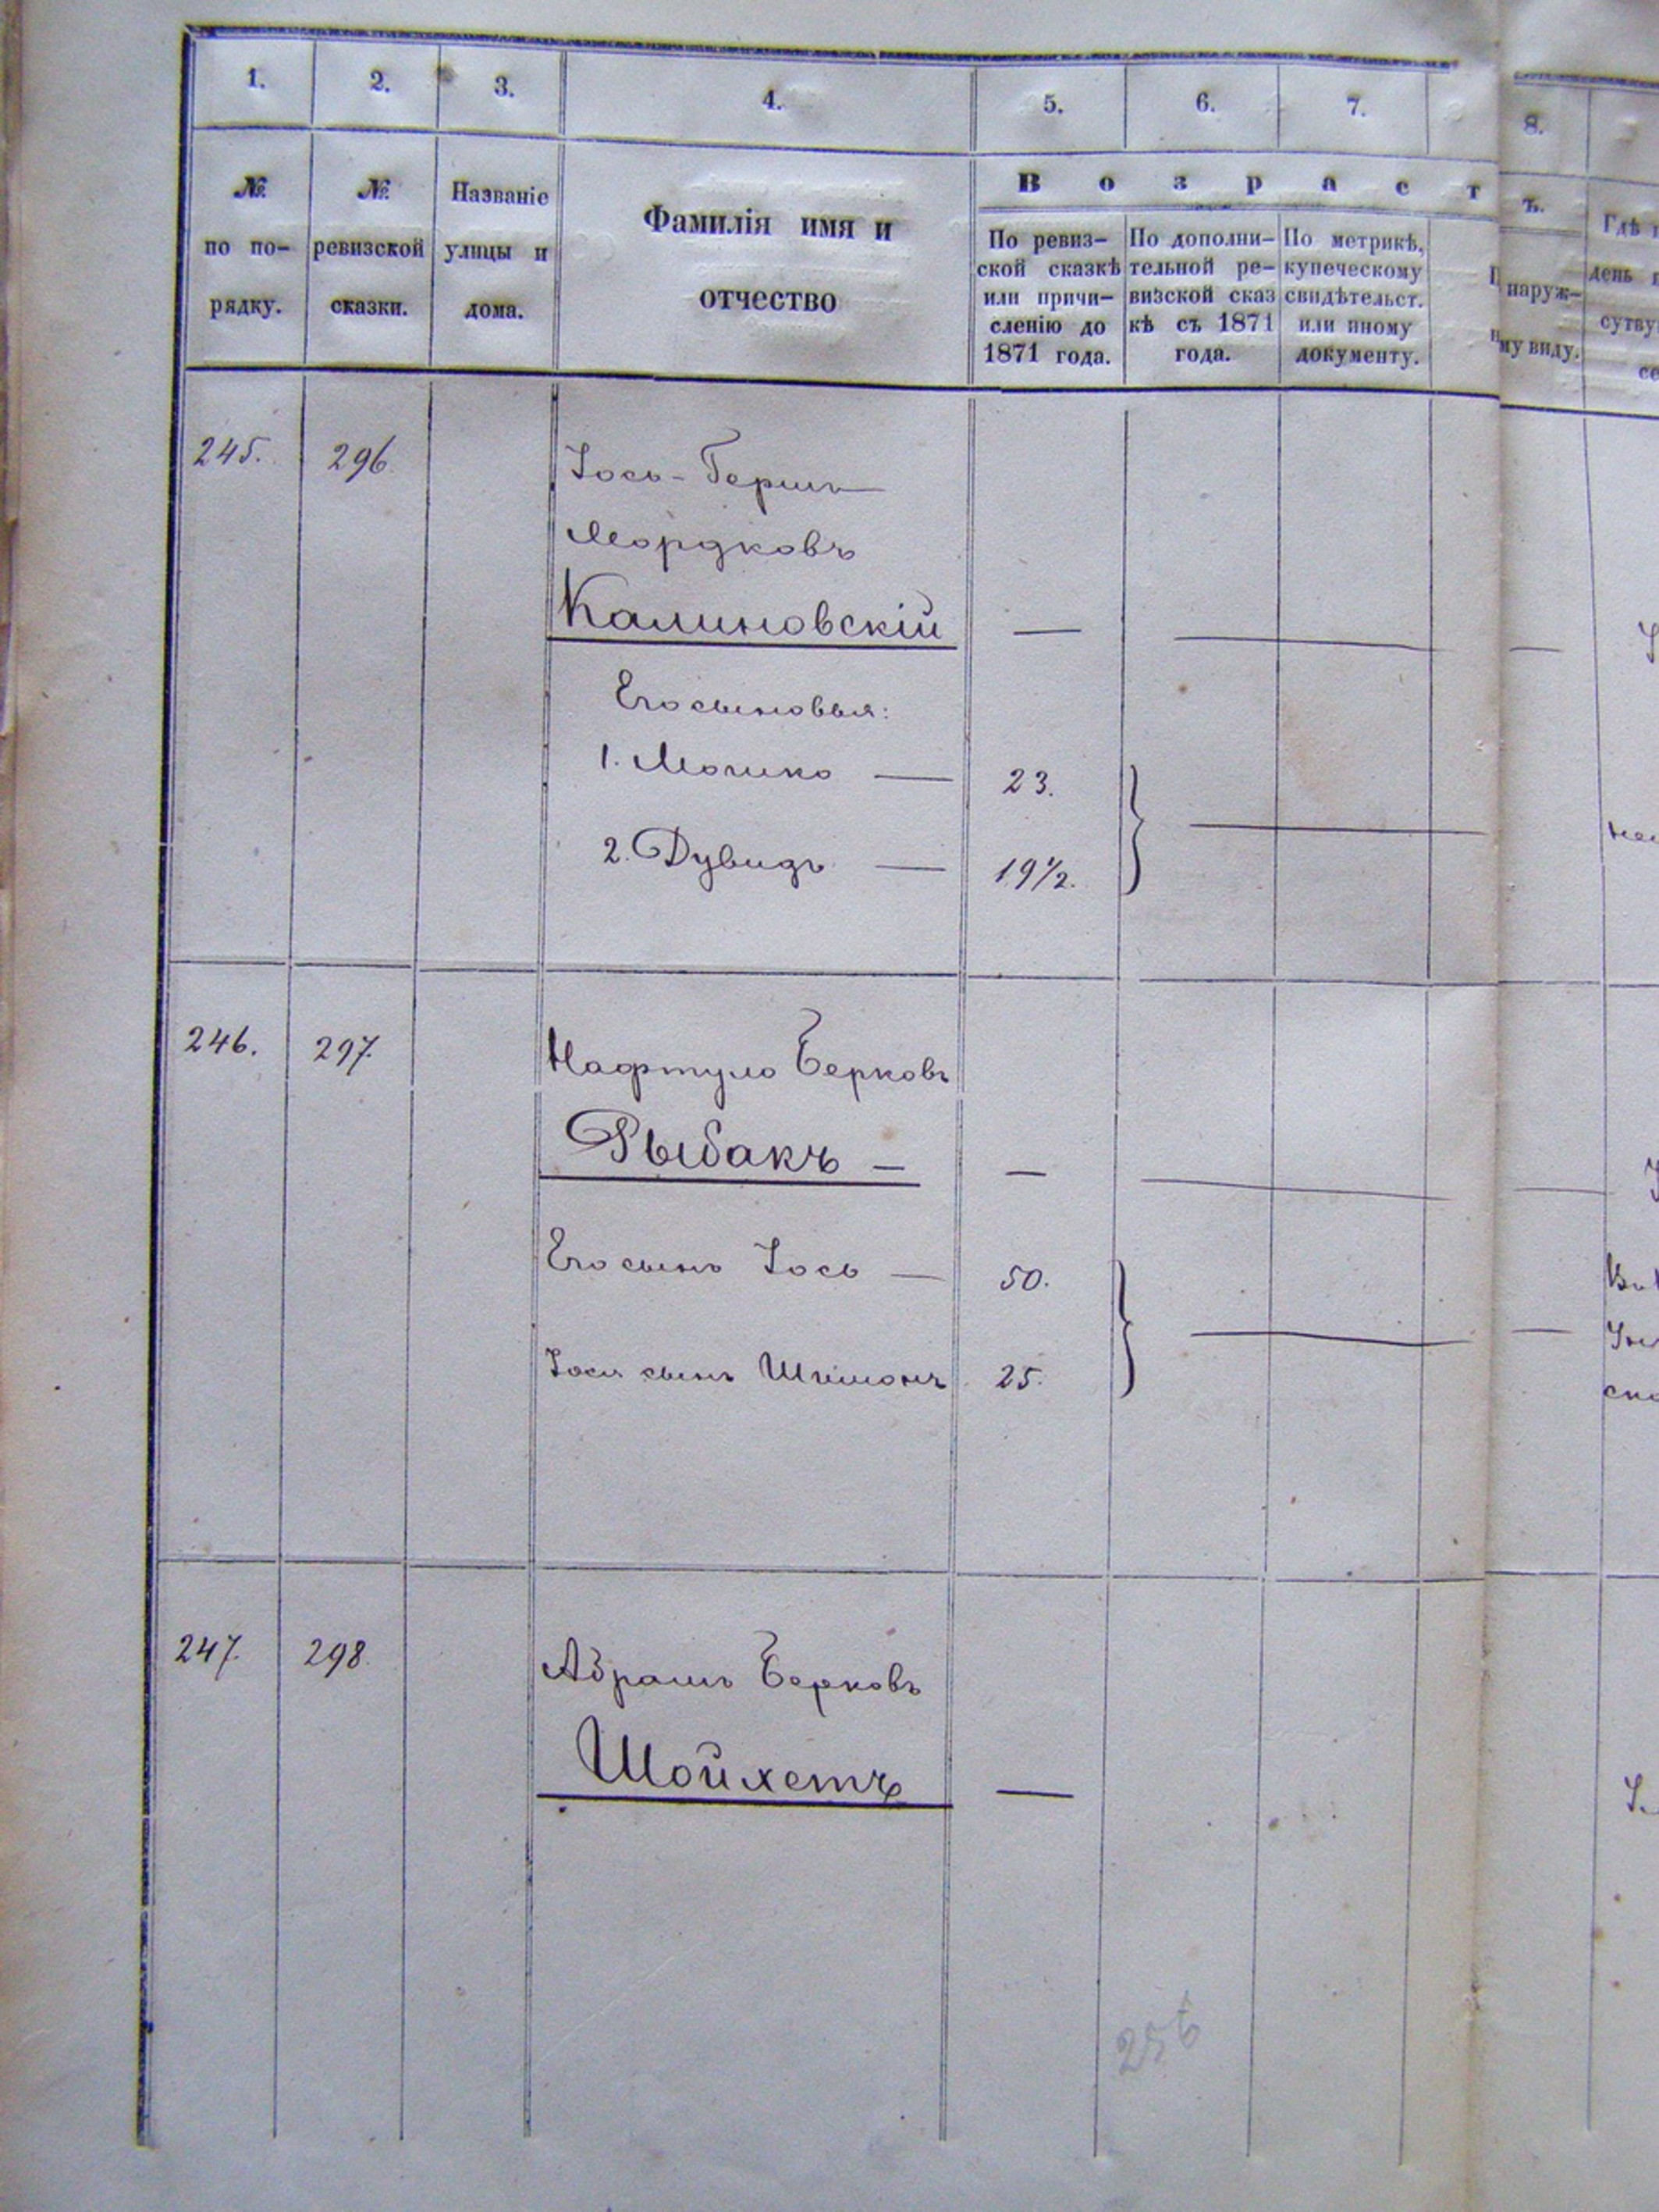 1. 2. 3. 4. 5. 6. 7. 8.
№ по по-рядку.
№ ревизской сказки.
Названіе улицы и дома.
Фамилія имя и отчество
В о з р а с т ъ.
По ревиз-
ской сказкѣ
или причи-
сленію до
1871 года.
По дополни-
тельной ре-
визской сказ
кѣ съ 1871
года.
По метрикѣ,
купеческому
свидѣтельст.
или иному
документу.
наруж-
му виду.
Гдѣ
день
сутву
се
245. 296. Іось-Гершъ
Мордковъ
Калиновскій —
Его сыновья:
1. Мошко — 23.
2. Дувидъ — 19 1/2.
246. 297. Нафтула Берковъ
Рыбакъ — —
Его сынъ Іось — 50.
Іося сынъ Шлiомъ 25.
247. 298. Абрамъ Берковъ
Шойхетъ —
256